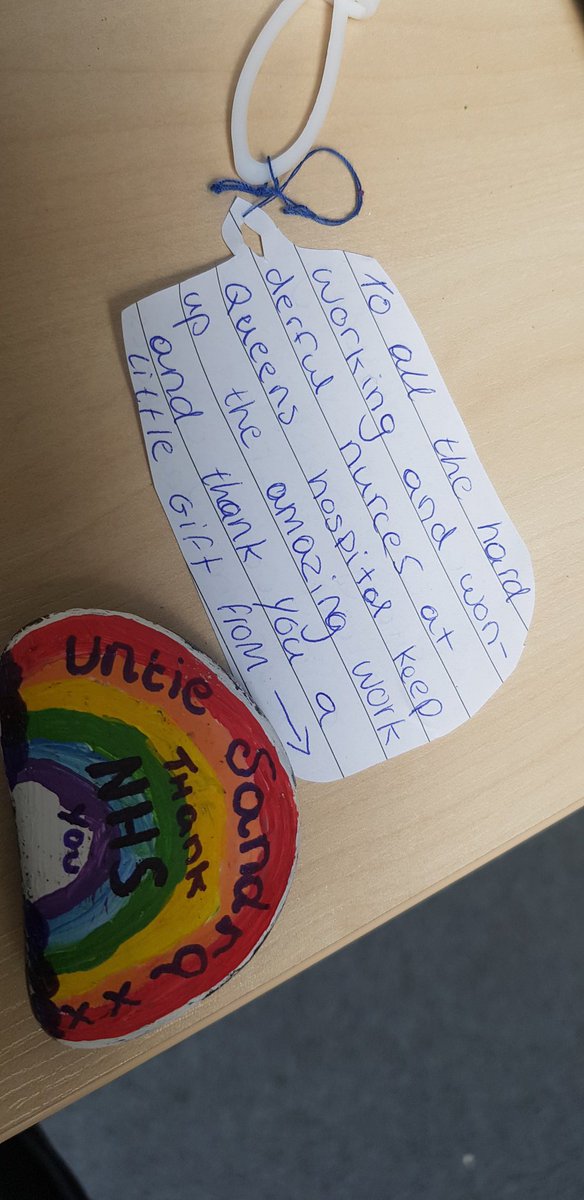 To all the hard
working and won-
derful nurces at
Queens hospital keep
up the amazing work
and thank you a
little Gift from →
untie Sandra xx
THank
NHS
you